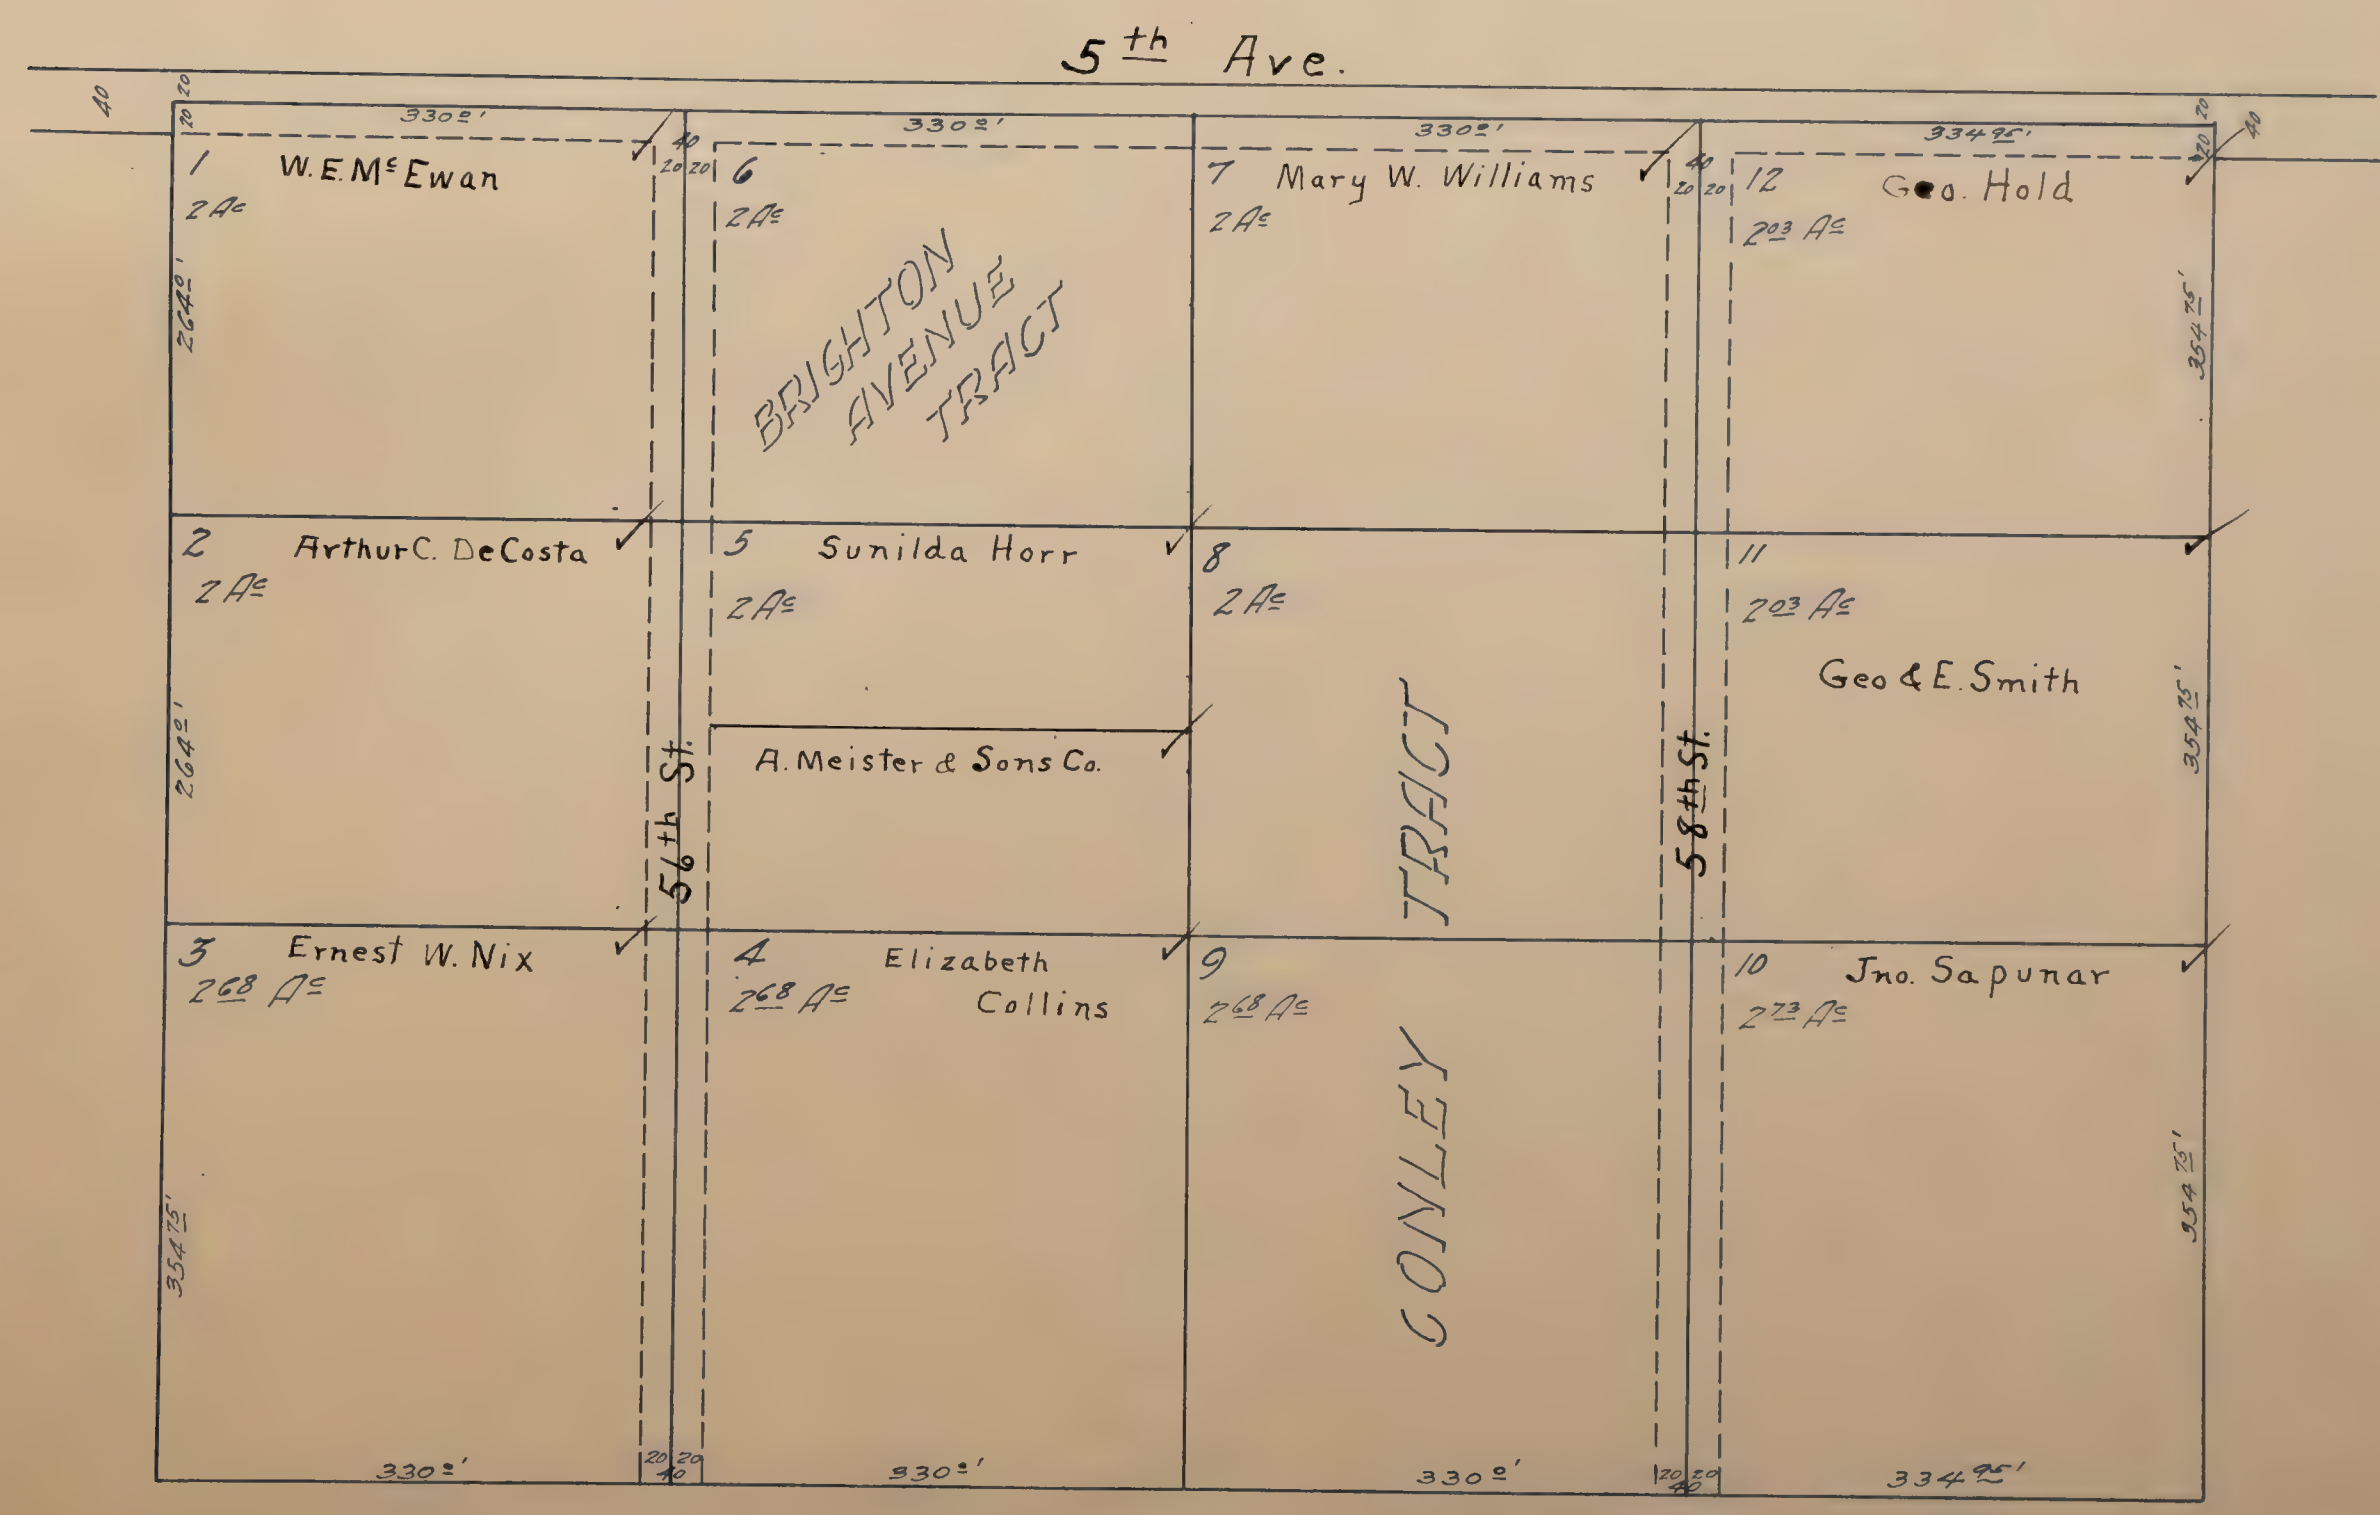 5th Ave.
40
20
20
330 0'
40
20 20
330 0'
330 0'
40
20 20
334 95'
20
20
40
1 W. E. Mc Ewan
2 Ac
264 0'
6
2 Ac
BRIGHTON
AVENUE
TRACT
7 Mary W. Williams
2 Ac
12 Geo. Hold
2 03 Ac
354 75'
2 Arthur C. DeCosta
2 Ac
264 0'
56th St.
5 Sunilda Horr
2 Ac
A. Meister & Sons Co.
8
2 Ac
CONLEY TRACT
58th St.
11
2 03 Ac
Geo & E. Smith
354 75'
3 Ernest W. Nix
2 68 Ac
354 75'
4 Elizabeth
Collins
2 68 Ac
9
2 68 Ac
10 Jno. Sapunar
2 73 Ac
354 75'
330 0'
20 20
40
330 0'
330 0'
20 20
40
334 95'